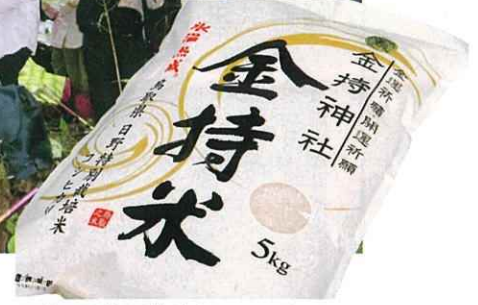 金運祈願開運祈願
金持神社
金持米
氷温熟成
鳥取県 日野特別栽培米
コシヒカリ
5kg